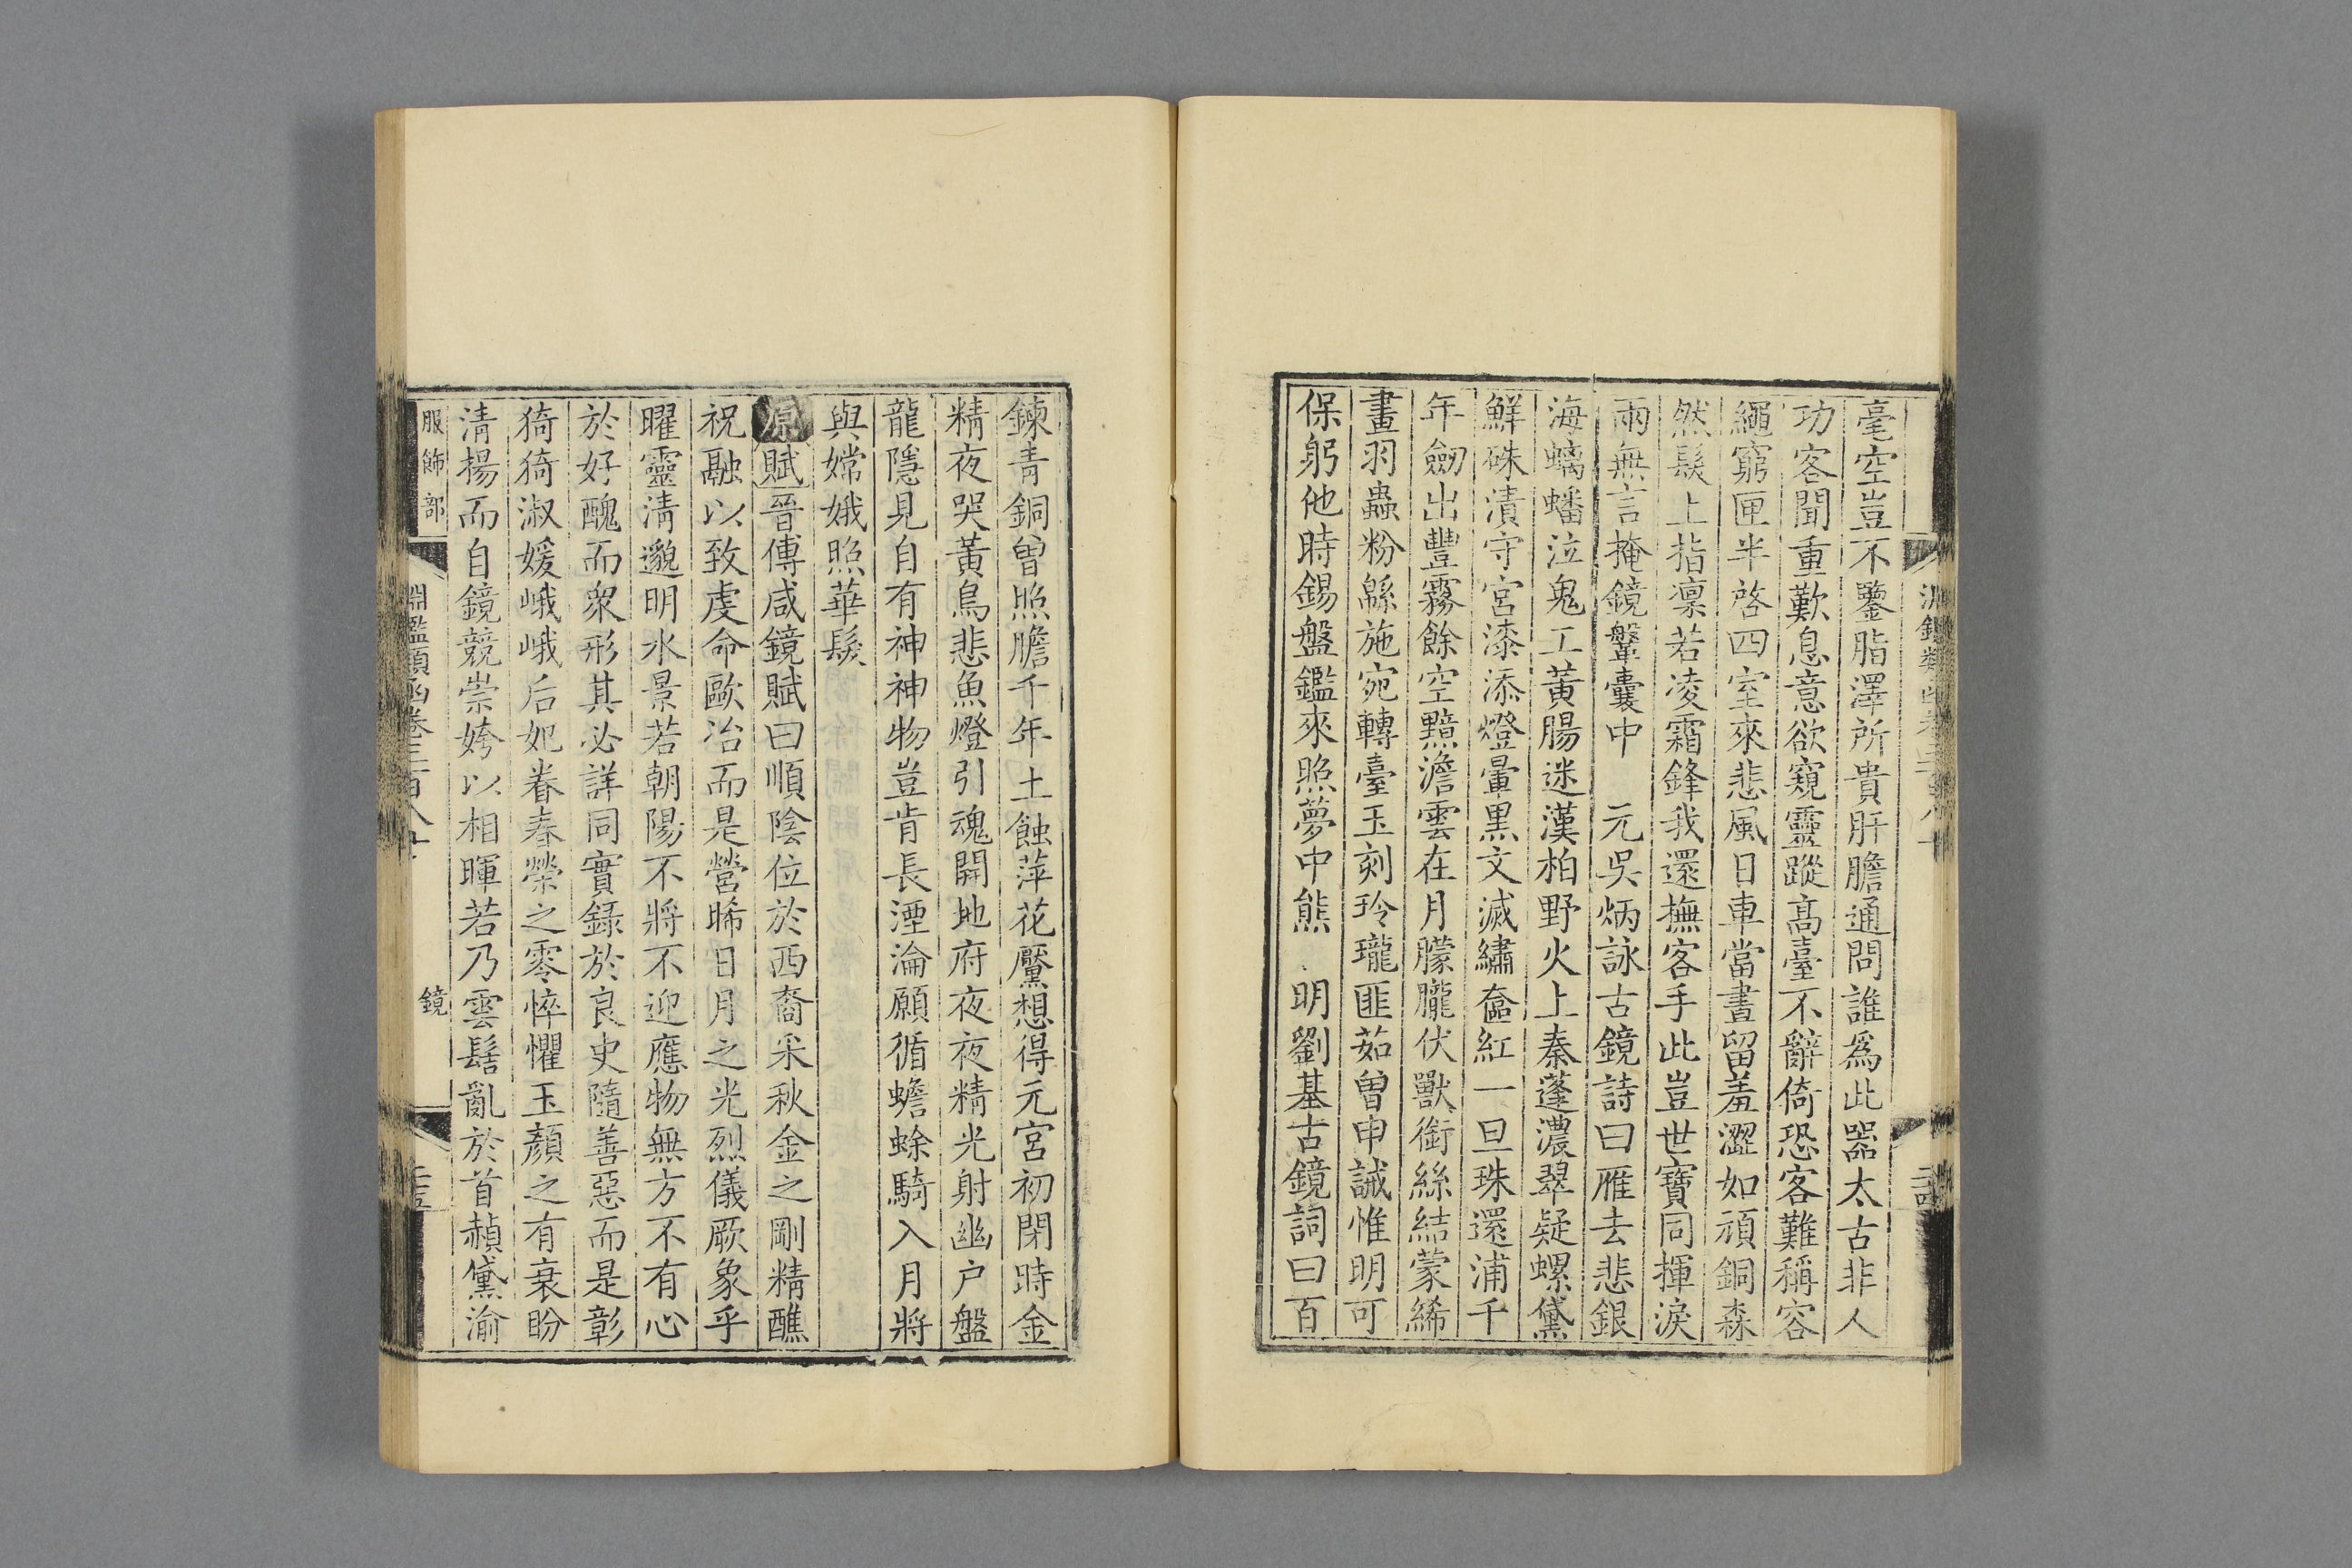 毫空豈不鑒脂澤所貴肝膽通問誰為此器太古非人
功客聞重歎息意欲窺靈蹤高臺不辭倚恐客難稱容
繩窮匣半啓四室來悲風日車當晝留羞澀如頑銅森
然髮上指凛若凌霜鋒我還撫客手此豈世寶同揮淚
兩無言掩鏡鞶囊中 元吳炳詠古鏡詩曰雁去悲銀
海螭蟠泣鬼工黃腸迷漢柏野火上秦蓬濃翠疑螺黛
鮮硃漬守宮漆添燈暈黑文滅繡奩紅一旦珠還浦千
年劒出豐霧餘空黯澹雲在月朦朧伏獸銜絲結蒙絺
畫羽蟲粉緜施宛轉臺玉刻玲瓏匪茹曾申誡惟明可
保躬他時錫盤鑑來照夢中熊 明劉基古鏡詞曰百
鍊青銅曾照膽千年土蝕萍花黶想得元宮初閉時金
精夜哭黃鳥悲魚燈引魂開地府夜夜精光射幽户盤
龍隱見自有神神物豈肯長湮淪願循蟾蜍騎入月將
與嫦娥照華髮
原賦晉傅咸鏡賦曰順陰位於西裔采秋金之剛精醮
祝融以致虔命歐冶而是營晞日月之光烈儀厥象乎
曜靈清邈明水景若朝陽不將不迎應物無方不有心
於好醜而衆形其必詳同實録於良史隨善惡而是彰
猗猗淑媛峨峨后妃眷春榮之零悴懼玉顏之有衰盼
清揚而自鏡競崇姱以相暉若乃雲髻亂於首頳黛渝
服飾部
淵鑑類函卷三百八十
鏡